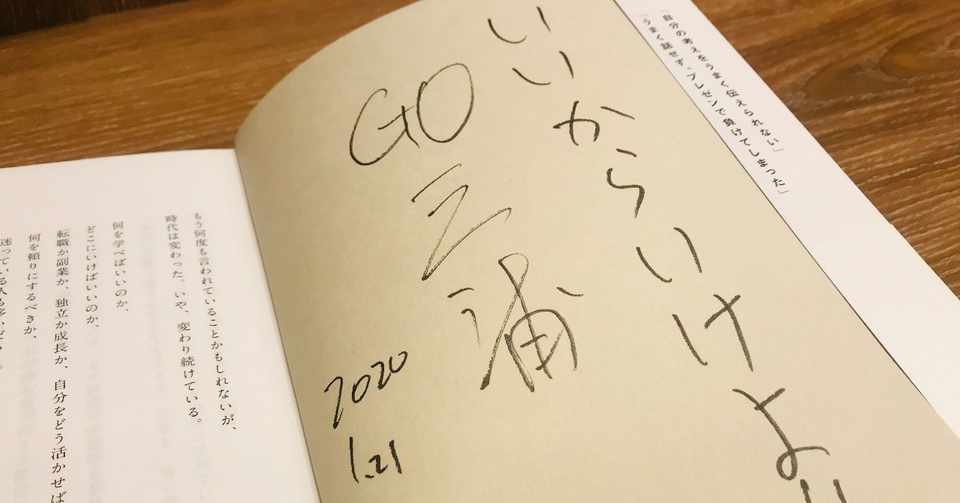 「自分の考えをうまく伝えられない」
「うまく話せず、プレゼンで負けてしまった」
いいからいけよ!!
GO三浦
2020
1.21
もう何度も言われていることかもしれないが、
時代は変わった。いや、変わり続けている。
何を学べばいいのか、
どこにいけばいいのか、
転職か副業か、独立か成長か、自分をどう活かせば
何を頼りにするべきか、
迷っている人も多い